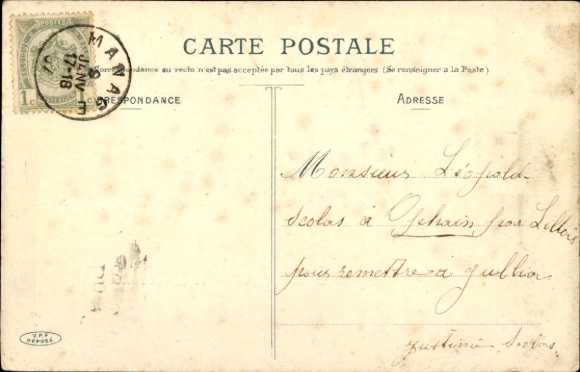 CARTE POSTALE
Correspondance au recto n'est pas acceptée par tous les pays étrangers (Se renseigner a la Poste)
CORRESPONDANCE
ADRESSE
MANAGE
9
JANV
17-18
07
1c
Monsieur Léopold
Scolas à Ophain, par Lillois
pour remettre a
Justinie Scolas
V.P.F
DÉPOSÉ